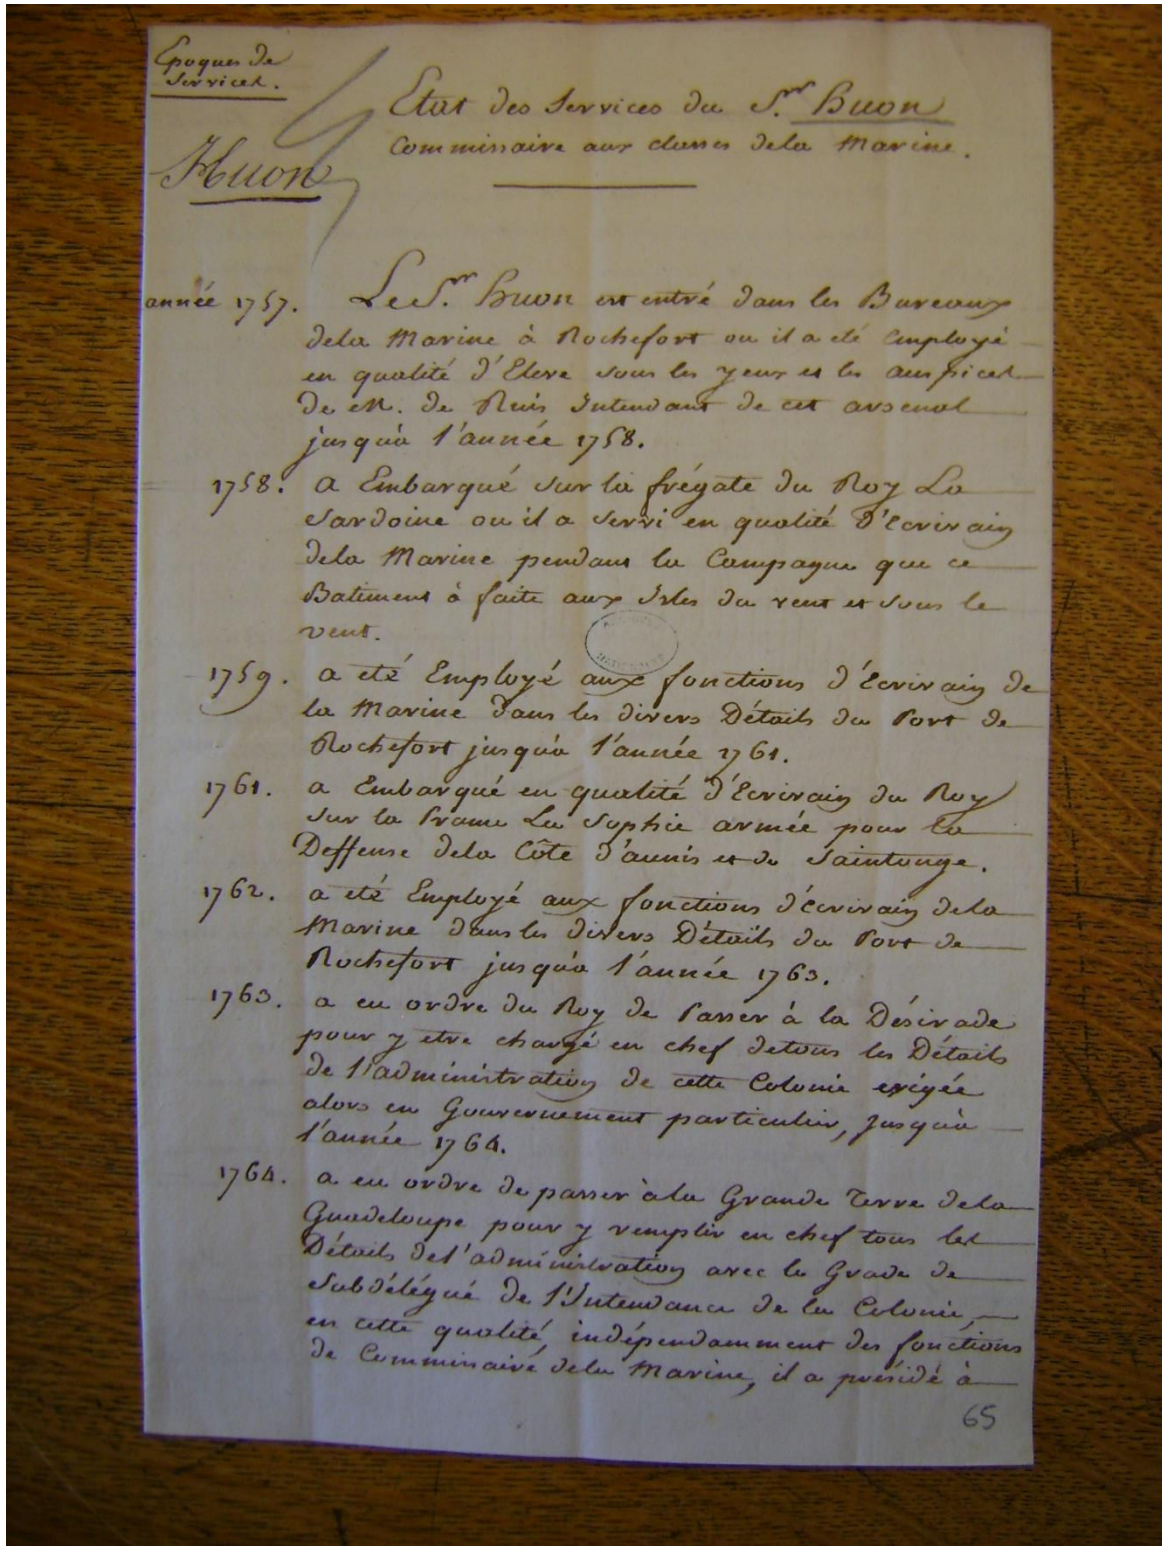 Epoques de
Services.
Huon
Etat des Services du S.r Huon
Commissaire aux classes dela Marine.
année 1757. Le S.r Huon est entré dans les Bureaux
dela Marine à Rochefort ou il a eté Employé
en qualité d'Eleve sous les yeux et les auspices
de M. de Ruis Intendant de cet arsenal
jusqu'à l'année 1758.
1758. a Embarqué sur la frégate du Roy La
Sardoine ou il a servi en qualité d'Ecrivain
dela Marine pendant la Campagne que ce
Batiment à faite aux Isles du vent et sous le
vent.
1759. a eté Employé aux fonctions d'Ecrivain de
la Marine dans les divers Détails du Port de
Rochefort jusqu'à l'année 1761.
1761. a Embarqué en qualité d'Ecrivain du Roy
sur la Prame La Sophie armée pour la
Deffense dela Côte d'aunis et de Saintonge.
1762. a eté Employé aux fonctions d'écrivain dela
Marine dans les divers Détails du Port de
Rochefort jusqu'à l'année 1763.
1763. a eu ordre du Roy de Passer à la Désirade
pour y etre chargé en chef detous les Détails
de l'administration de cette Colonie erigée
alors en Gouvernement particulier, jusqu'à
l'année 1764.
1764. a eu ordre de passer àla Grande Terre dela
Guadeloupe pour y remplir en chef tous les
Détails del'administration avec le Grade de
Subdélégué de l'Intendance de la Colonie,
en cette qualité, indépendamment des fonctions
de Commissaire dela Marine, il a présidé à
65